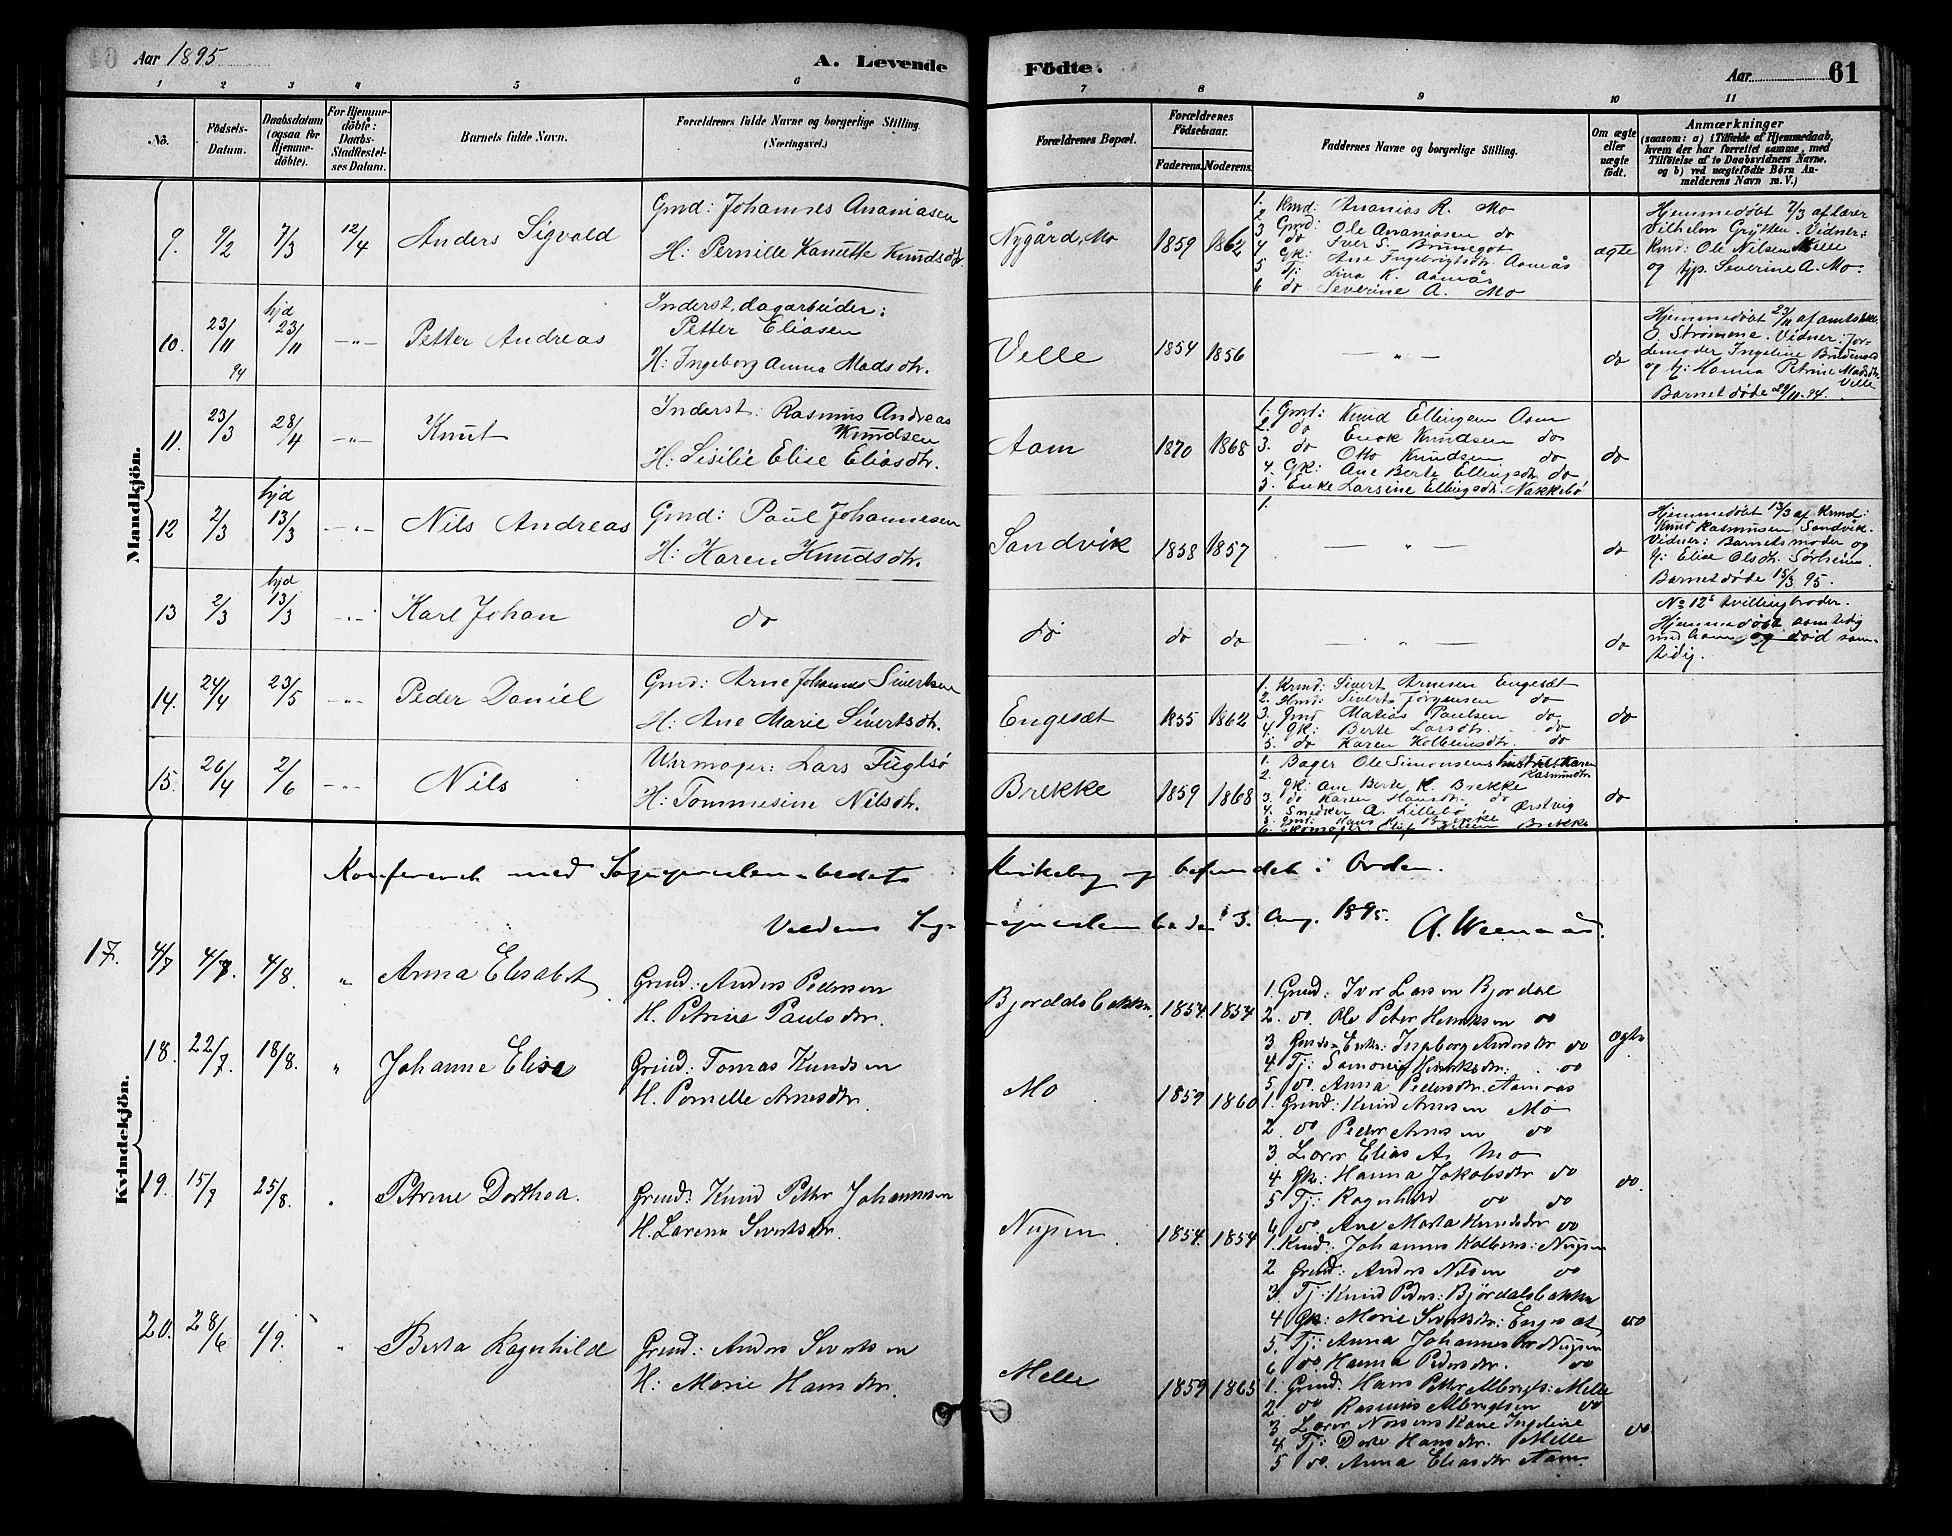 Aar 1895
A. Levende
Födte.
Aar
61
1 2 3 4 5 6 7 8 9 10 11
No.
Födsels-Datum.
Daabsdatum (ogsaa for Hjemme-döbte).
For Hjemme-döbte: Daabs-Stadfæstel-ses Datum.
Barnets fulde Navn.
Forældrenes fulde Navne og borgerlige Stilling. (Næringsvei.)
Forældrenes Bopæl.
Forældrenes Födselsaar.
Faderens. Moderens.
Faddernes Navne og borgerlige Stilling.
Om ægte eller uægte födt.
Anmærkninger
(saasom: a) i Tilfælde af Hjemmedaab,
hvem der har forrettet samme, med
Tilföielse af to Daabsvidners Navne.
og b) ved uægtefödte Börn An-
melderens Navn m. V.)
Mandkjön.
9. 9/2 7/3 12/4 Anders Sigvald
Gmd: Johannes Ananiasen
H: Pernille Kanutte Knudsdtr.
Nygård, Mo 1859 1862
1. Kmd: Ananias R. Mo
2 Gmd: Ole Ananiasen do
3 do Iver S. Brunegot
4 Gk: Ane Ingebrigtsdtr. Aamås
5 Tj: Lina K. Aamås
6 do Severine A. Mo
ægte
Hjemmedøbt 7/3 af lærer
Vilhelm Grytten. Vidner:
Kmd: Ole Nilsen Melle
og tjp. Severine A. Mo.
10. 23/11 94 hjd 23/11 -"- Petter Andreas
Inderst, dagarbeider:
Petter Eliasen
H: Ingeborg Anna Madsdtr.
Velle 1854 1856 - " - do
Hjemmedøbt 23/11 af amtsskl.
O. Strømme. Vidner: Jor-
demoder Ingeline
og tj: Hanna Petrine Madsdtr.
Velle
Barnet døde 29/11. 94.
11. 23/3 28/4 -"- Knut
Inderst: Rasmus Andreas
Knudsen
H: Lisilie Elise Eliasdtr.
Aam 1870 1868
1. Gmd: Knud Ellingsen Aam
2. do Enok Knudsen do
3. do Otto Knudsen do
4. Gk: Ane Berte Ellingsdtr. do
5. Enke Larsine Ellingsdtr. Nakkebø
do
12 2/3 hjd 13/3 -"- Nils Andreas
Gmd: Paul Johannesen
H: Karen Knudsdtr.
Sandvik 1858 1857
1.
- " - do
Hjemmedøbt 13/3 af Kmd:
Knud Rasmusen Sandvik.
Vidner: Barnets moder og
tj: Elise Olsdtr. Sørheim.
Barnet døde 15/3 95.
13 2/3 hjd 13/3 -"- Karl Johan
do
do do do - " - do
No 12s tvillingbroder.
Hjemmedøbt samtidig
med ham og død sam-
tidig.
14. 24/4 23/5 -"- Peder Daniel
Gmd: Arne Johannes Sivertsen
H: Ane Marie Sivertsdtr.
Engesæt 1855 1862
1. Kmd: Sivert Arnesen Engesæt
2. Gmd: Sivert Jørgensen do
3. Gmd Matias Paulsen do
4. Gk: Berte Larsdtr. do
5. do Karen Kolbeinsdtr. do
do
15. 26/4 2/6 -"- Nils
Uhrmager: Lars Fuglsø
H: Tommesine Nilsdtr.
Brekke 1859 1868
1. Bager Ole Simonsens hustru Karen
Rasmusdtr.
2. Gk: Ane Berte K. Brekke
3. do Karen Hansdtr. do
4. Snedker A. Lillebø Ørstvig
5. Gmd: Hans K. Brekke
6. Skomager Olaf Nilsen Brekke
do
Konfereret med Sognepræstembedets Kirkebog og befundet i Orden.
Voldens Sognepræstembede 3. Aug. 1895.
Kvindekjön.
17. 4/7 4/8. " Anna Elisabet
Grmd: Anders Pedersen
H. Petrine Paulsdtr.
Bjordalsbakke. 1854. 1854
1. Grmd: Iver Larsen Bjordal
2. do. Ole Peter Henriksen do
3 Gmds Enke: Ingeborg Andersdtr do
4 Tj: Henriksdtr. do
5. do. Anna Pedersdtr. Aamaas
ægte.
18. 22/7. 18/8. " Johanne Elise
Grmd: Tomas Knudsen
H. Pernelle Arnesdtr.
Mo 1859 1860
1. Grmd: Knud Arnesen Mo
2. do Peder Arnesen do
3 Lærer Elias A. Mo
4 Gk: Hanna Jakobsdtr do
5 Tj: Ragnhild do do
6 do. Ane Marta Knudsdtr do
do.
19. 15/7 25/8. " Petrine Dorthea.
Grmd: Knud Petter Johannesen
H. Larena Sivertsdtr.
Nupen. 1854. 1854
1. Kmd: Johannes Kolbens: Nupen
2 Grmd: Anders Nilsen do
3. Tj: Knud Peders: Bjørdalsbakke
4 Gk: Marie Sivertsdtr: Engesæt
5. Tj: Anna Johannesdtr Nupen
6 do. Hanna Pedersdtr. do
do
20. 28/6 1/9. " Berta Ragnhild
Grmd: Anders Sivertsen
H: Marie Hansdtr.
Melle 1859 1865
1. Grmd: Hans Petter Albrigts: Melle
2 do Rasmus Albrigtsen do
3 Lærer Nossens Kone Ingeline
4 Tj: Dorte Hansdtr. Melle
5 do. Anna Eliasdtr Aam.
do.